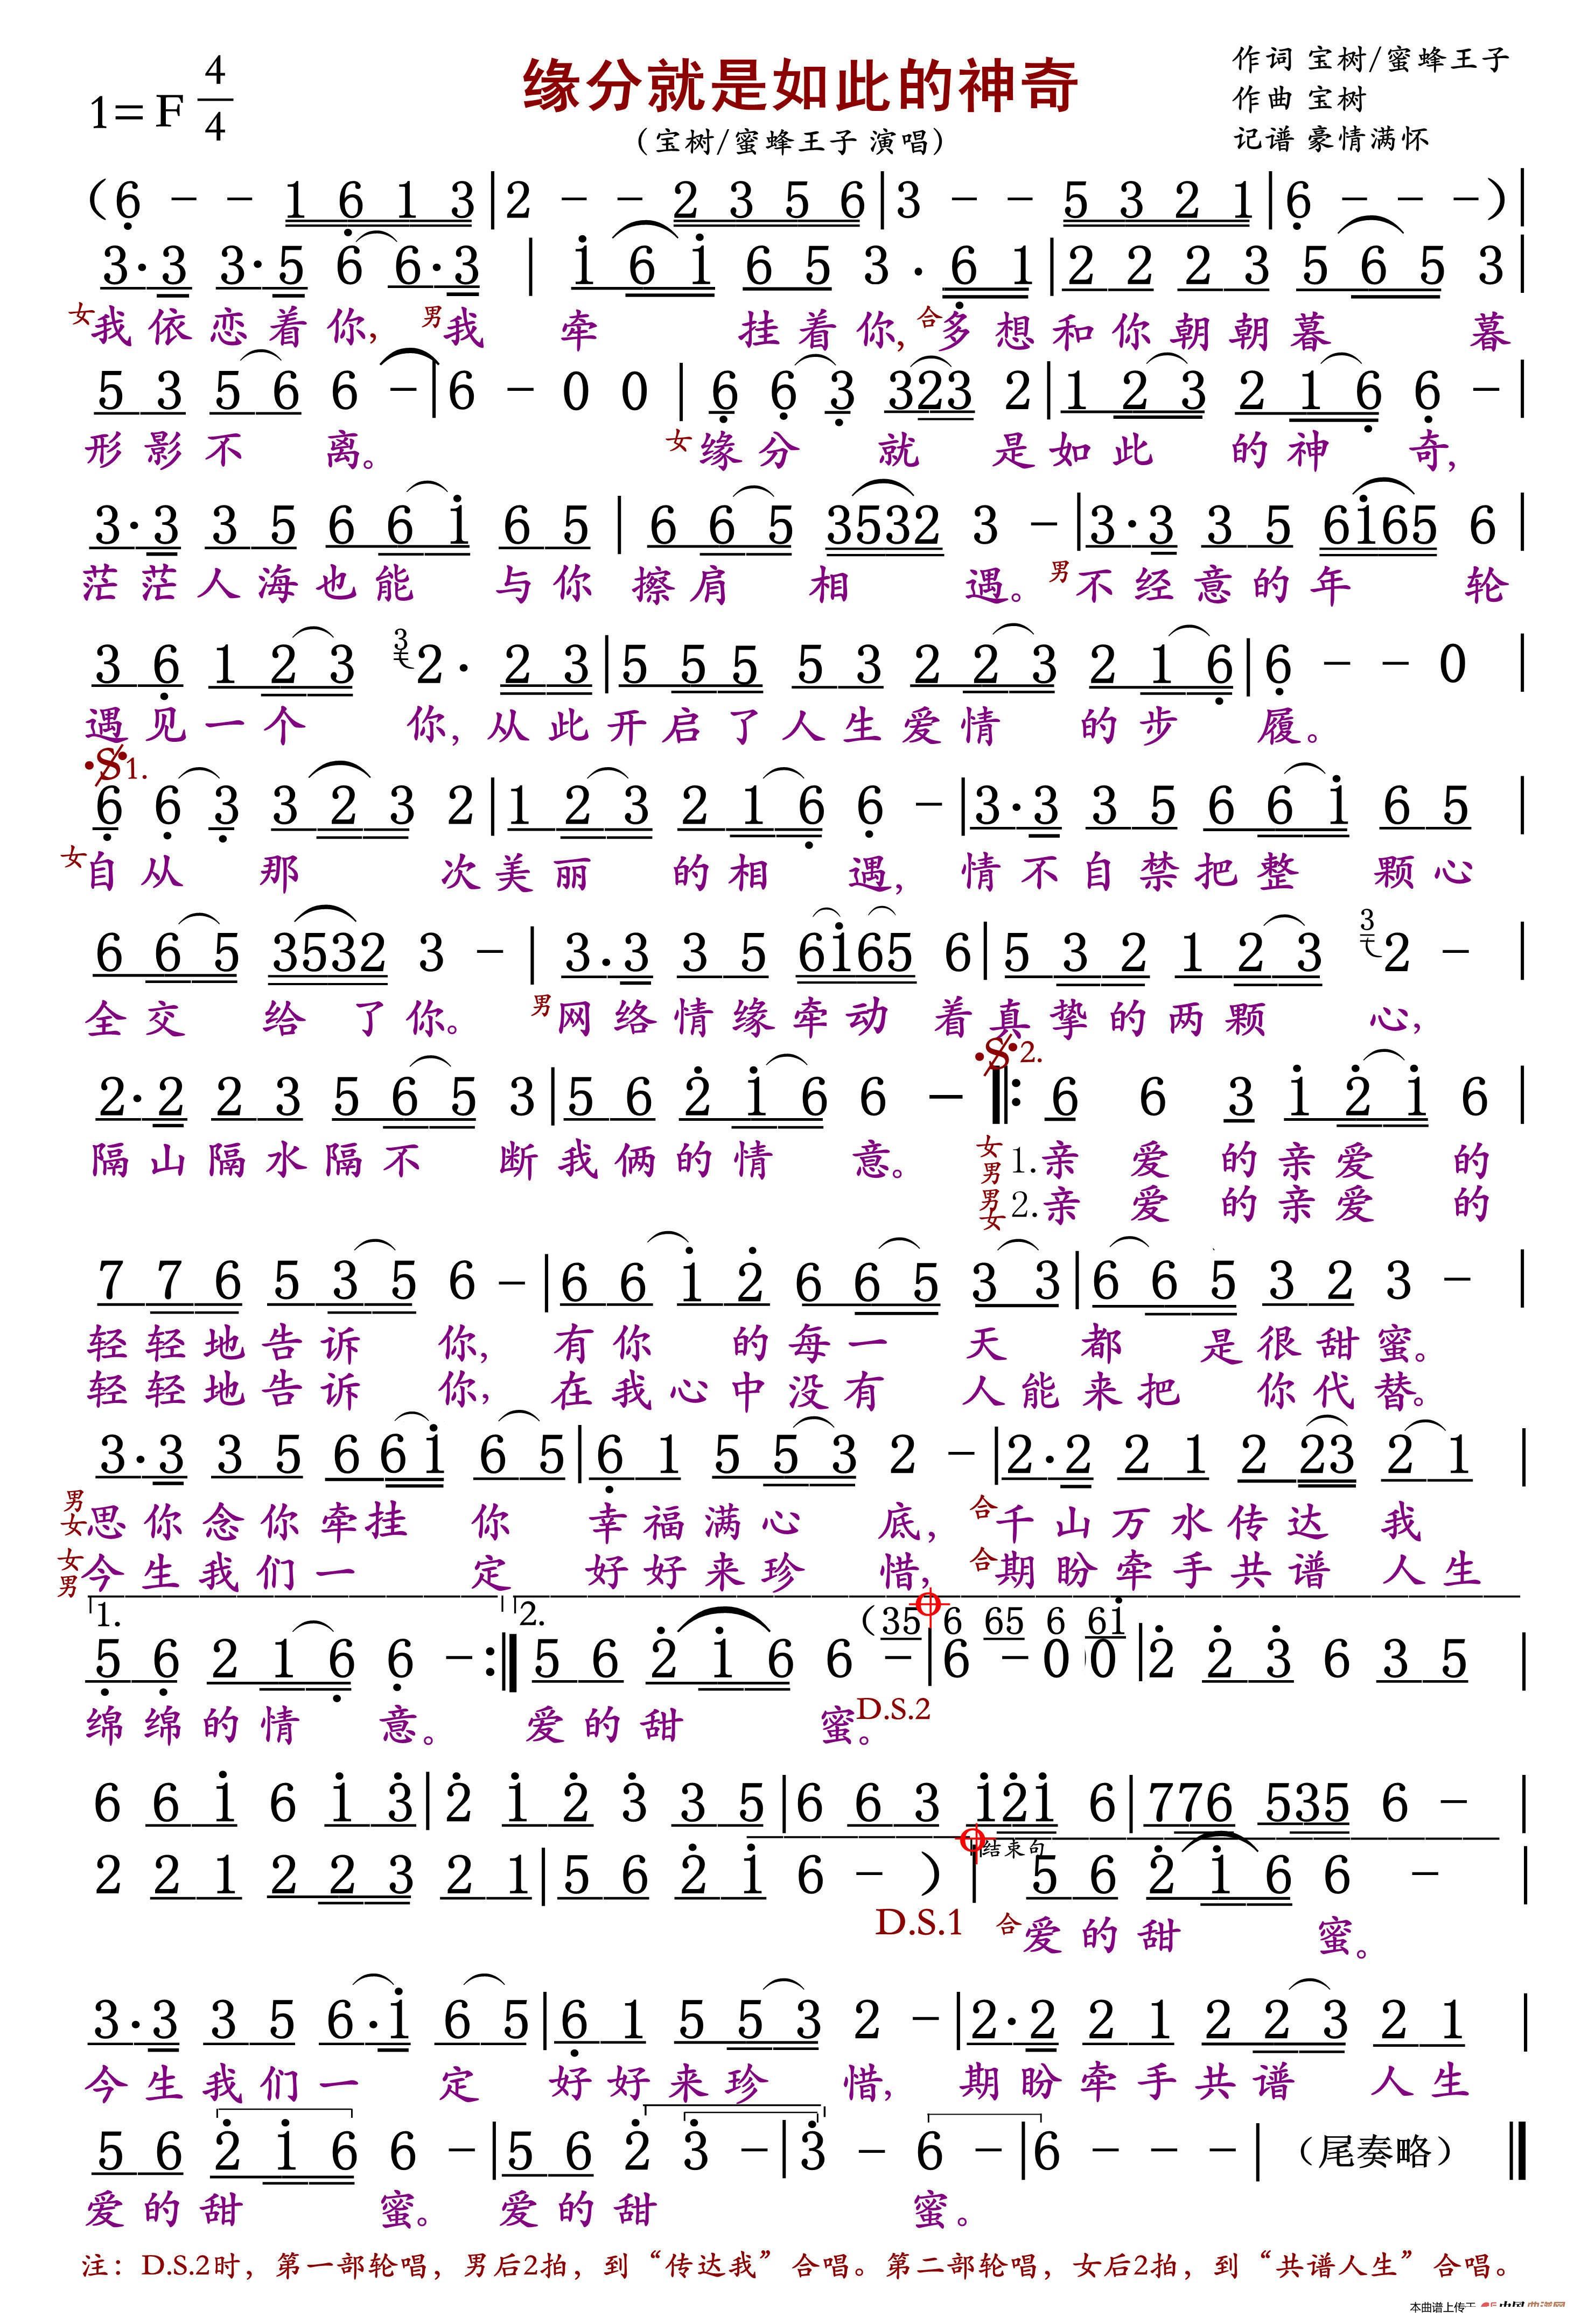 缘分就是如此的神奇
1=F 4/4
(宝树/蜜蜂王子 演唱)
作词 宝树/蜜蜂王子
作曲 宝树
记谱 豪情满怀
(6 - - 1 6 1 3|2 - - 2 3 5 6|3 - - 5 3 2 1|6 - - -)|
3·3 3·5 6 6·3 | i 6 i 6 5 3 · 6 1|2 2 2 3 5 6 5 3|
女我依恋着你,男我牵挂着你,合多想和你朝朝暮暮
5 3 5 6 6 -|6 - 0 0 | 6 6 3 323 2|1 2 3 2 1 6 6 -|
形影不离。女缘分就是如此的神奇,
3·3 3 5 6 6 i 6 5 | 6 6 5 3532 3 -|3·3 3 5 6i65 6|
茫茫人海也能与你擦肩相遇。男不经意的年轮
3 6 1 2 3 3 2· 2 3|5 5 5 5 3 2 2 3 2 1 6|6 - - 0 |
遇见一个你,从此开启了人生爱情的步履。
1.
6 6 3 3 2 3 2|1 2 3 2 1 6 6 -|3·3 3 5 6 6 i 6 5 |
女自从那次美丽的相遇,情不自禁把整颗心
6 6 5 3532 3 - | 3·3 3 5 6i65 6|5 3 2 1 2 3 3 2 - |
全交给了你。男网络情缘牵动着真挚的两颗心,
2.
2·2 2 3 5 6 5 3|5 6 2 i 6 6 - ‖: 6 6 3 i 2 i 6 |
隔山隔水隔不断我俩的情意。女男1.亲爱的亲爱的
男女2.亲爱的亲爱的
7 7 6 5 3 5 6 -|6 6 i 2 6 6 5 3 3|6 6 5 3 2 3 - |
轻轻地告诉你,有你的每一天都是很甜蜜。
轻轻地告诉你,在我心中没有人能来把你代替。
3·3 3 5 6 6 i 6 5|6 1 5 5 3 2 -|2·2 2 1 2 23 2 1 |
男女思你念你牵挂你幸福满心底,合千山万水传达我
女男今生我们一定好好来珍惜,合期盼牵手共谱人生
1. 2. (35 6 65 6 6i
5 6 2 1 6 6 - :‖5 6 2 i 6 6 -|6 - 0 0|2 2 3 6 3 5 |
绵绵的情意。爱的甜蜜。D.S.2
6 6 i 6 i 3|2 i 2 3 3 5|6 6 3 i2i 6|776 535 6 - |
结束句
2 2 1 2 2 3 2 1|5 6 2 i 6 - )| 5 6 2 i 6 6 - |
D.S.1 合爱的甜蜜。
3·3 3 5 6·i 6 5|6 1 5 5 3 2 -|2·2 2 1 2 2 3 2 1 |
今生我们一定好好来珍惜,期盼牵手共谱人生
5 6 2 i 6 6 -|5 6 2 3 -|3 - 6 -|6 - - -| (尾奏略) ‖
爱的甜蜜。爱的甜蜜。
注：D.S.2时，第一部轮唱，男后2拍，到“传达我”合唱。第二部轮唱，女后2拍，到“共谱人生”合唱。
本曲谱上传于